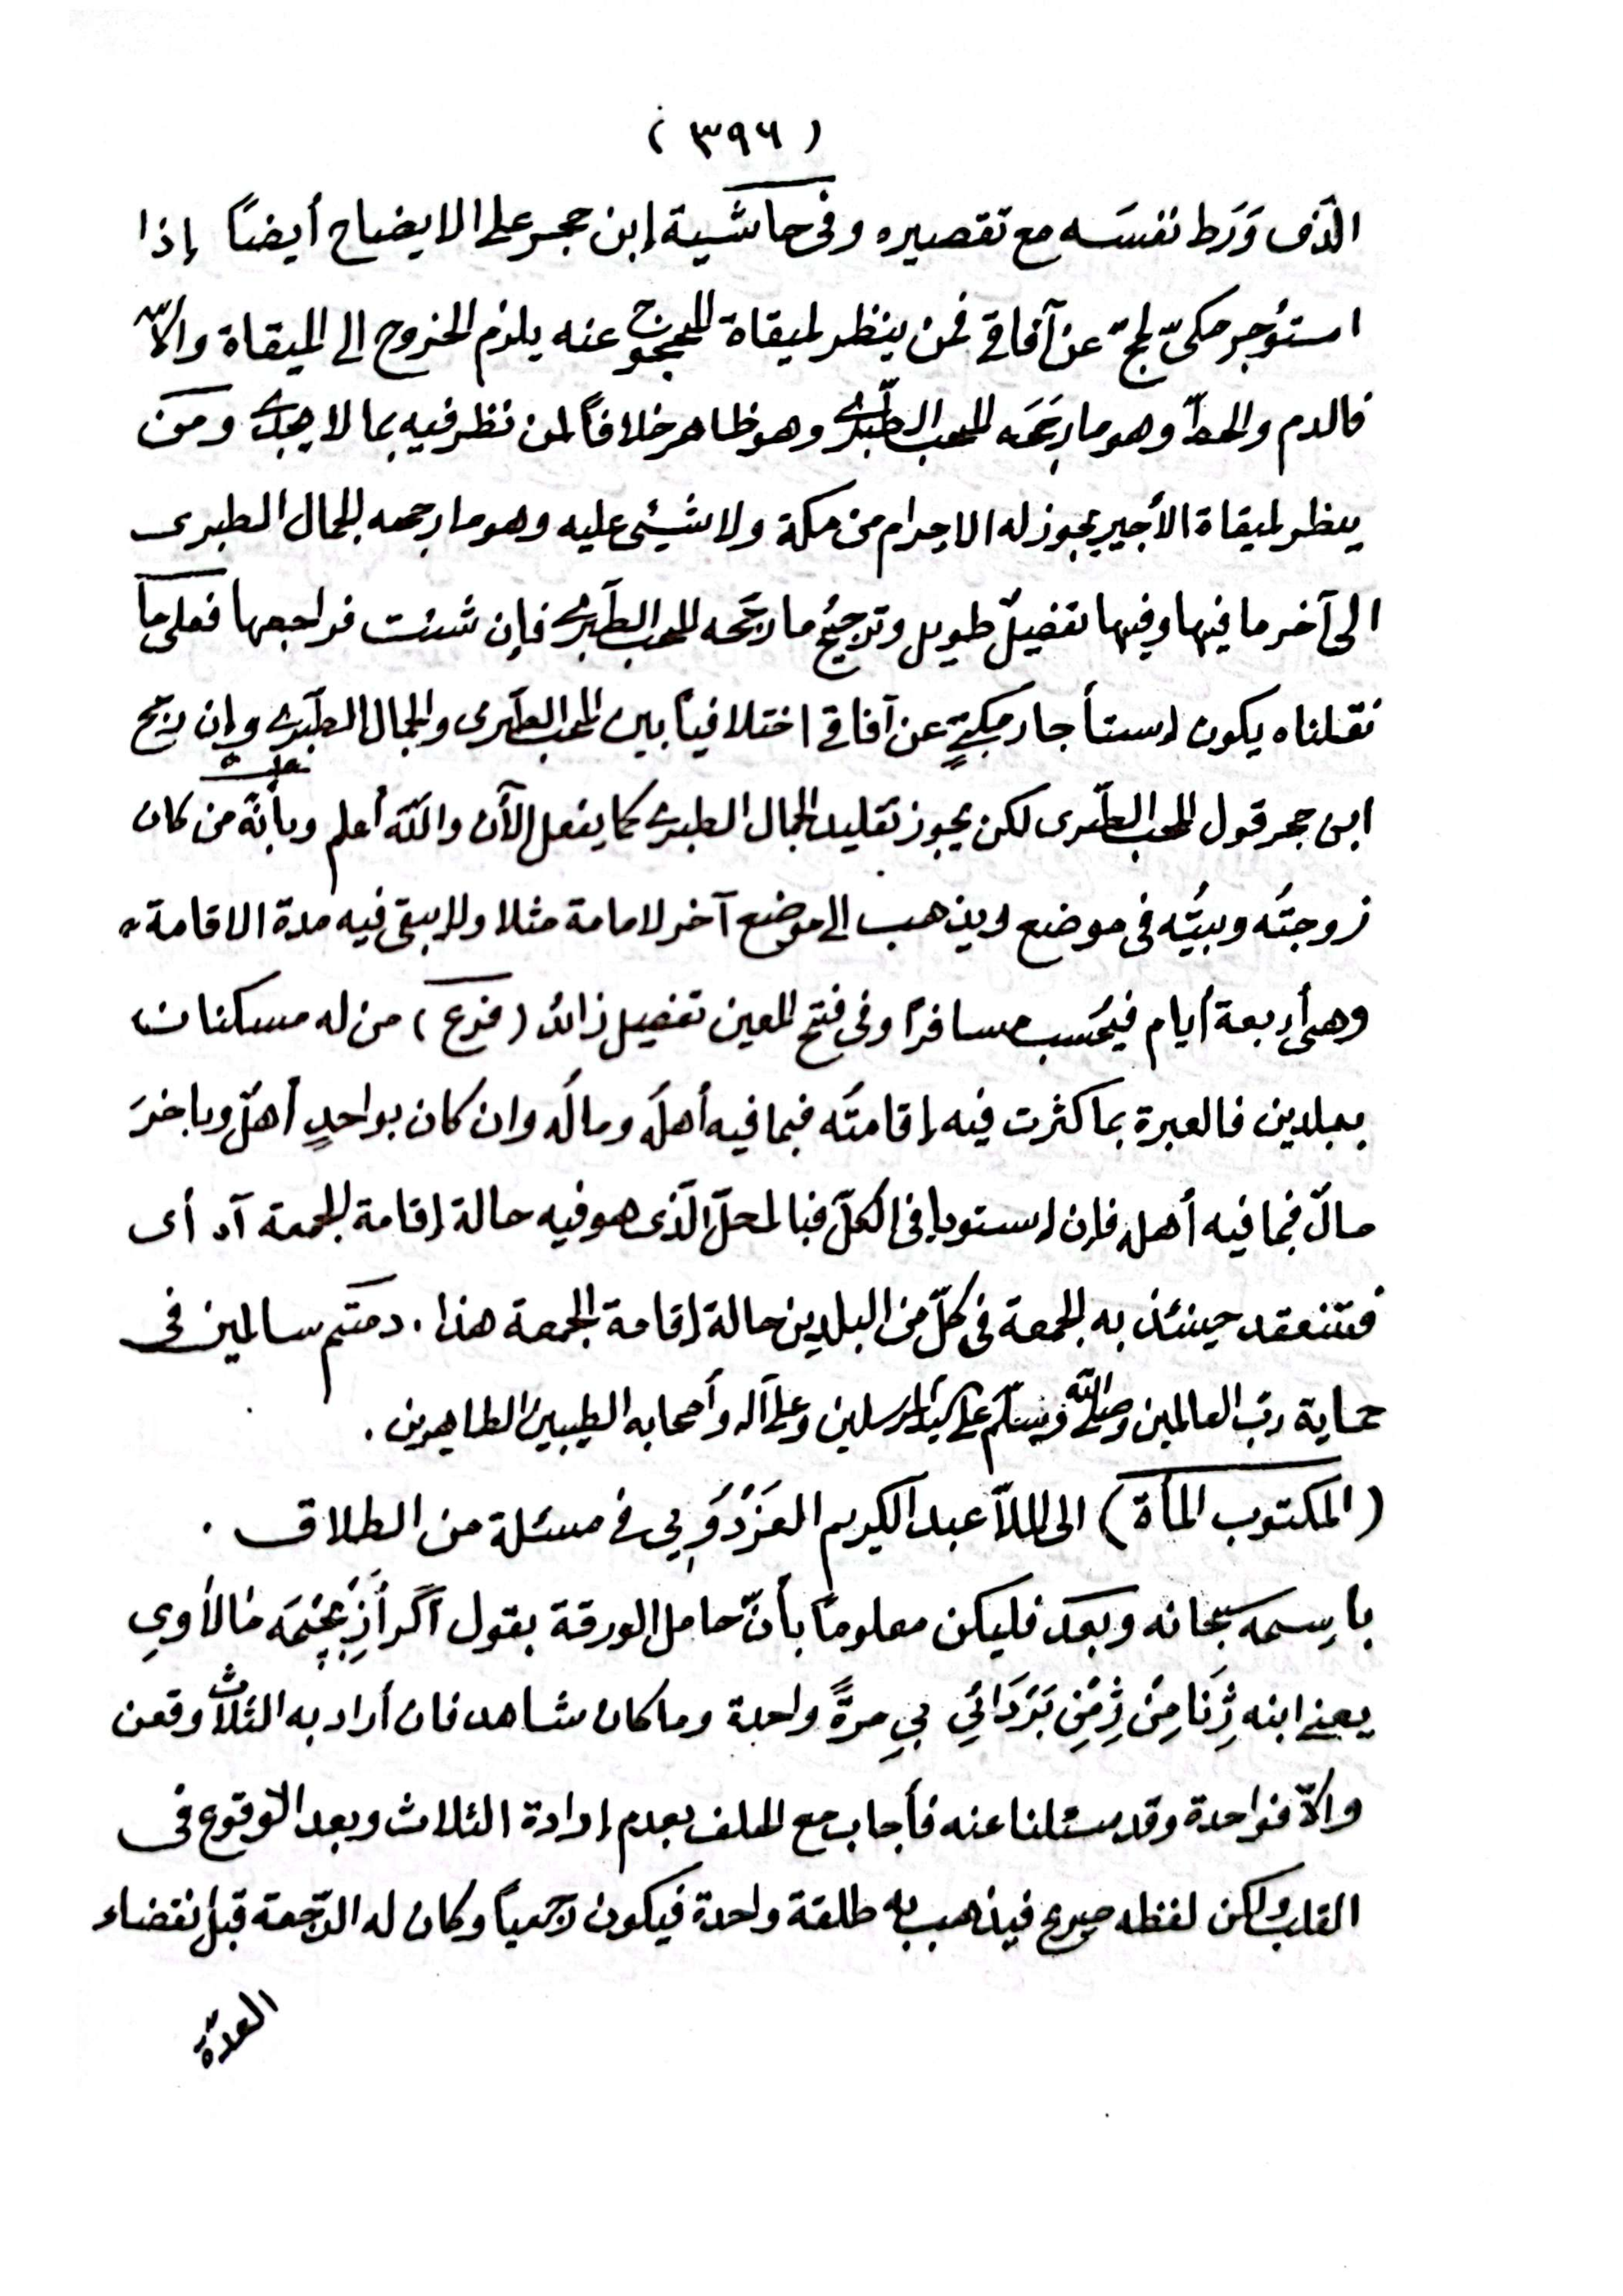 ( ٣٩٦ )
الّذى وَرَط نفسَه مع تقصيره وفى حاشية إبن حجر على الايضاح أيضاً إذا
استؤجر مكىّ لحجّ عن آفاقي فمن ينظر لميقاة المحجوج عنه يلزم الخروج الى الميقاة والاّ
فالدم والحطّ وهو ما رجّحَه المحب الطّبرى وهو ظاهر خلافاً لمن نظر فيه بما لا يجدى ومَن
ينظر لميقاة الأجير يجوز له الاحرام من مكة ولا شيئى عليه وهو ما رجحه الجمال الطبرى
الى آخر ما فيها وفيها تفصيلٌ طويل وترجيحُ ما رجّحه المحب الطّبرى فإن شئت فراجعها فعلى ما
نقلناه يكون إستأجار مكيّ عن آفاقي اختلافياً بين المحب الطّبرى والجمال الطّبرى وإن رجّح
ابن حجر قول المحب الطّبرى لكن يجوز تقليد الجمال الطبرى كما يفعل الآن والله أعلم وبأنّه من كان
زوجتُه وبيتُه فى موضع ويذهب الى موضع آخر لامامة مثلا ولا يبقى فيه مدة الاقامة
وهى أربعة أيام فيُحسَب مسافراً وفى فتح المعين تفصيل زائد (فرع) من له مسكنان
ببلدين فالعبرة بما كثرت فيه إقامتُه فبما فيه أهلُه ومالُه وان كان بواحدٍ أهلٌ وبآخرَ
مالٌ فبما فيه أهله فإن إستويا فى الكلّ فبالمحلّ الّذى هو فيه حالة إقامة الجمعة آه أى
فتنعقد حينئذ به الجمعة فى كلّ من البلدين حالة إقامة الجمعة هذا . دمتم سالمين فى
حماية ربّ العالمين وصلى الله وسلّم على سيد المرسلين وعلى آله وأصحابه الطيبين الطاهرين .
(المكتوب المأة) الى الملاّ عبد الكريم الغَزْدَوِيي فى مسئلة من الطلاق .
باسمه سبحانه وبعد فليكن معلوماً بأنّ حامل الورقة يقول اگر أَزِ بچِمَه مالأوي
يعنى ابنه ژِنَا مِنْ ژِمِنْ بَرَدَائِي بي مرةً واحدة وما كان شاهد فان أراد به الثلاث وقعن
والاّ فواحدة وقد سئلنا عنه فأجاب مع الحلف بعدم إرادة الثلاث وبعد الوقوع فى
القلب ولكن لفظه صريح فيذهب به طلقة واحدة فيكون رجعياً وكان له الرّجعة قبل انقضاء
العدّة